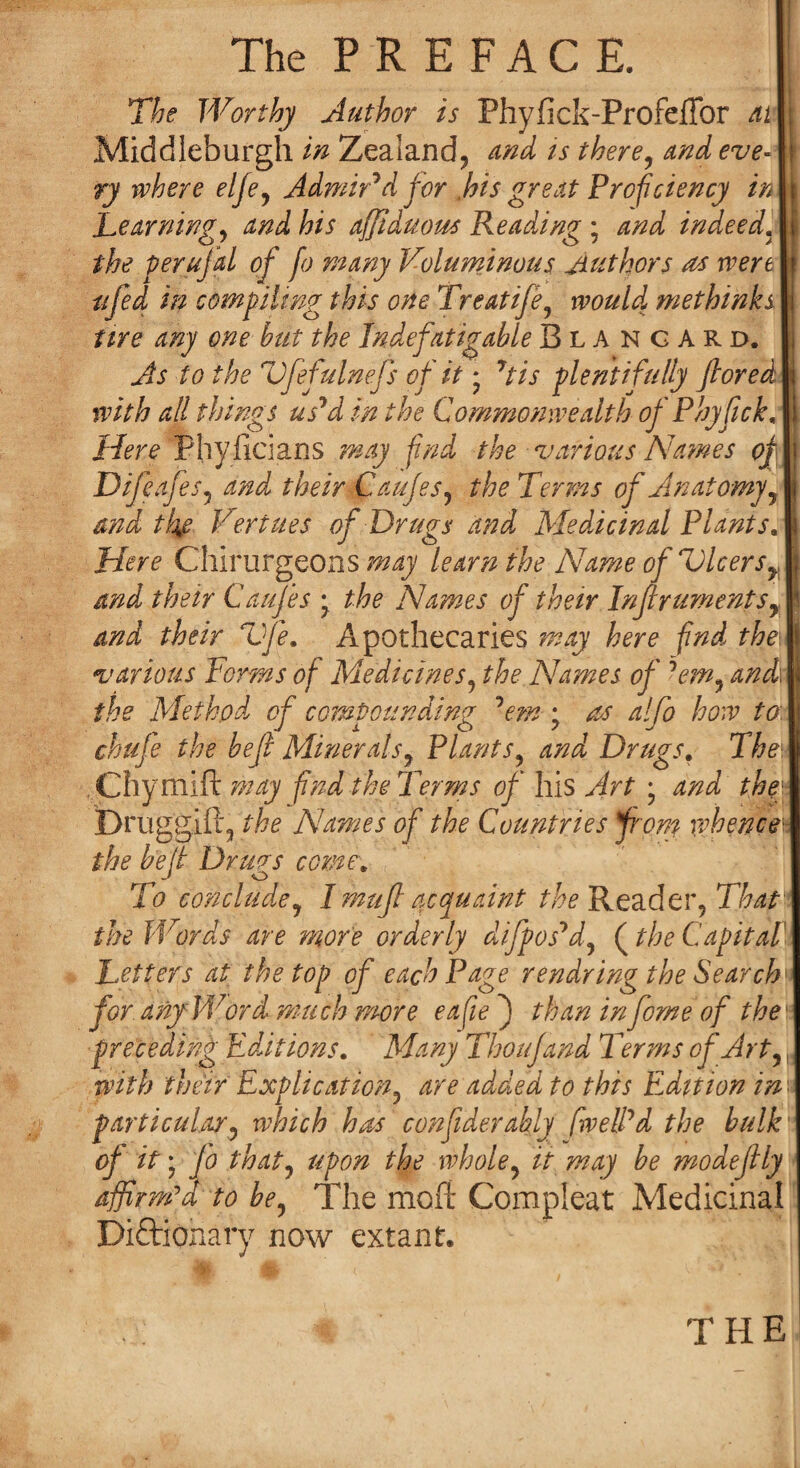 The PREFACE.
The Worthy Author is Phyſick-Profeſſor at
Middleburgh in Zealand, and is there, and eve-
ry where elſe, Admir'd for his great Proficiency in
Learning, and his aſſiduous Reading; and indeed,
the peruſal of ſo many Voluminous Authors as were
uſed in compiling this one Treatiſe, would methinks
tire any one but the Indefatigable BLANCARD.
As to the Uſefulneſs of it; 'tis plentifully ſtored
with all things us'd in the Commonwealth of Phyſick.
Here Phyſicians may find the various Names of
Diſeaſes, and their Cauſes, the Terms of Anatomy,
and the Vertues of Drugs and Medicinal Plants.
Here Chirurgeons may learn the Name of Ulcers,
and their Cauſes; the Names of their Inſtruments,
and their Uſe. Apothecaries may here find the
various Forms of Medicines, the Names of 'em, and
the Method of compounding 'em; as alſo how to
chuſe the beſt Minerals, Plants, and Drugs. The
Chymiſt may find the Terms of his Art; and the
Druggiſt, the Names of the Countries from whence
the beſt Drugs come.
To conclude, I muſt acquaint the Reader, That
the Words are more orderly diſpos'd, (the Capital
Letters at the top of each Page rendring the Search
for any Word much more eaſie) than in ſome of the
preceding Editions. Many Thouſand Terms of Art,
with their Explication, are added to this Edition in
particular, which has conſiderably ſwell'd the bulk
of it; ſo that, upon the whole, it may be modeſtly
affirm'd to be, The moſt Compleat Medicinal
Dictionary now extant.
THE